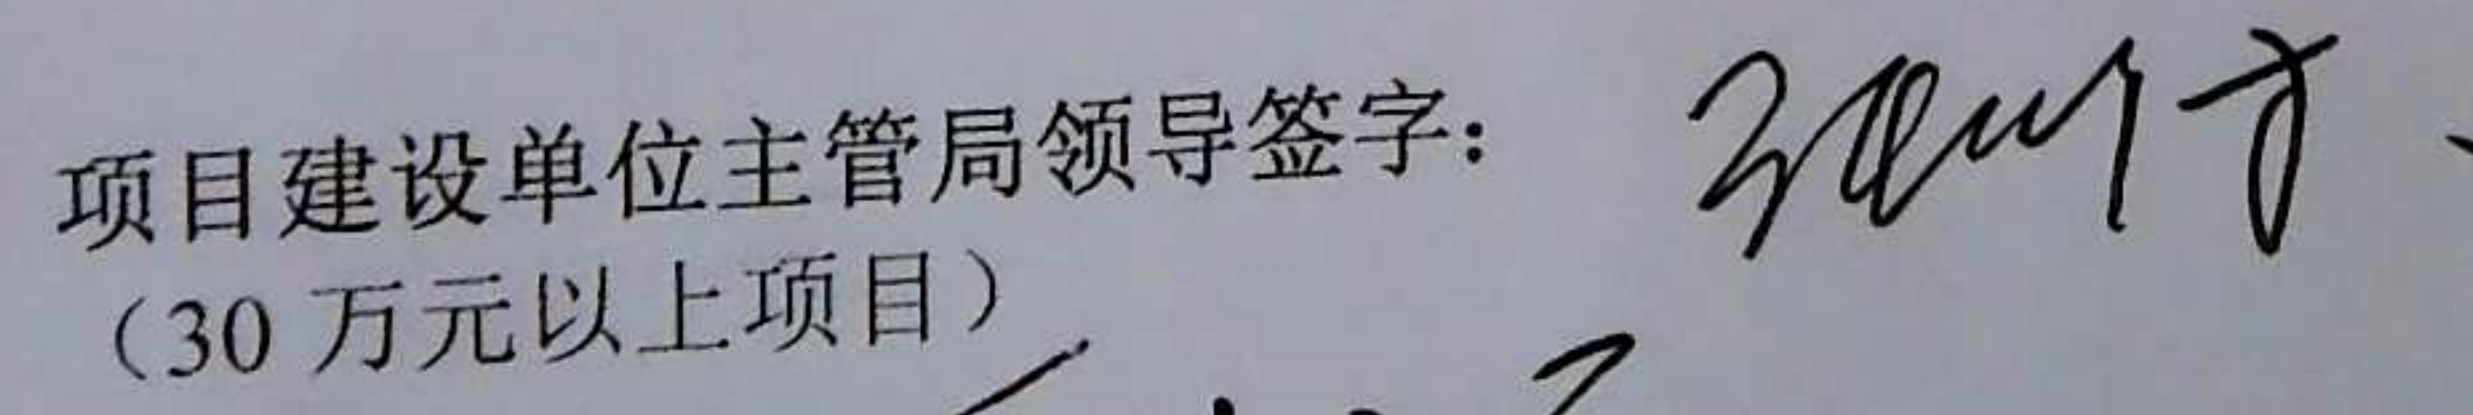 项目建设单位主管局领导签字：
（30 万元以上项目）